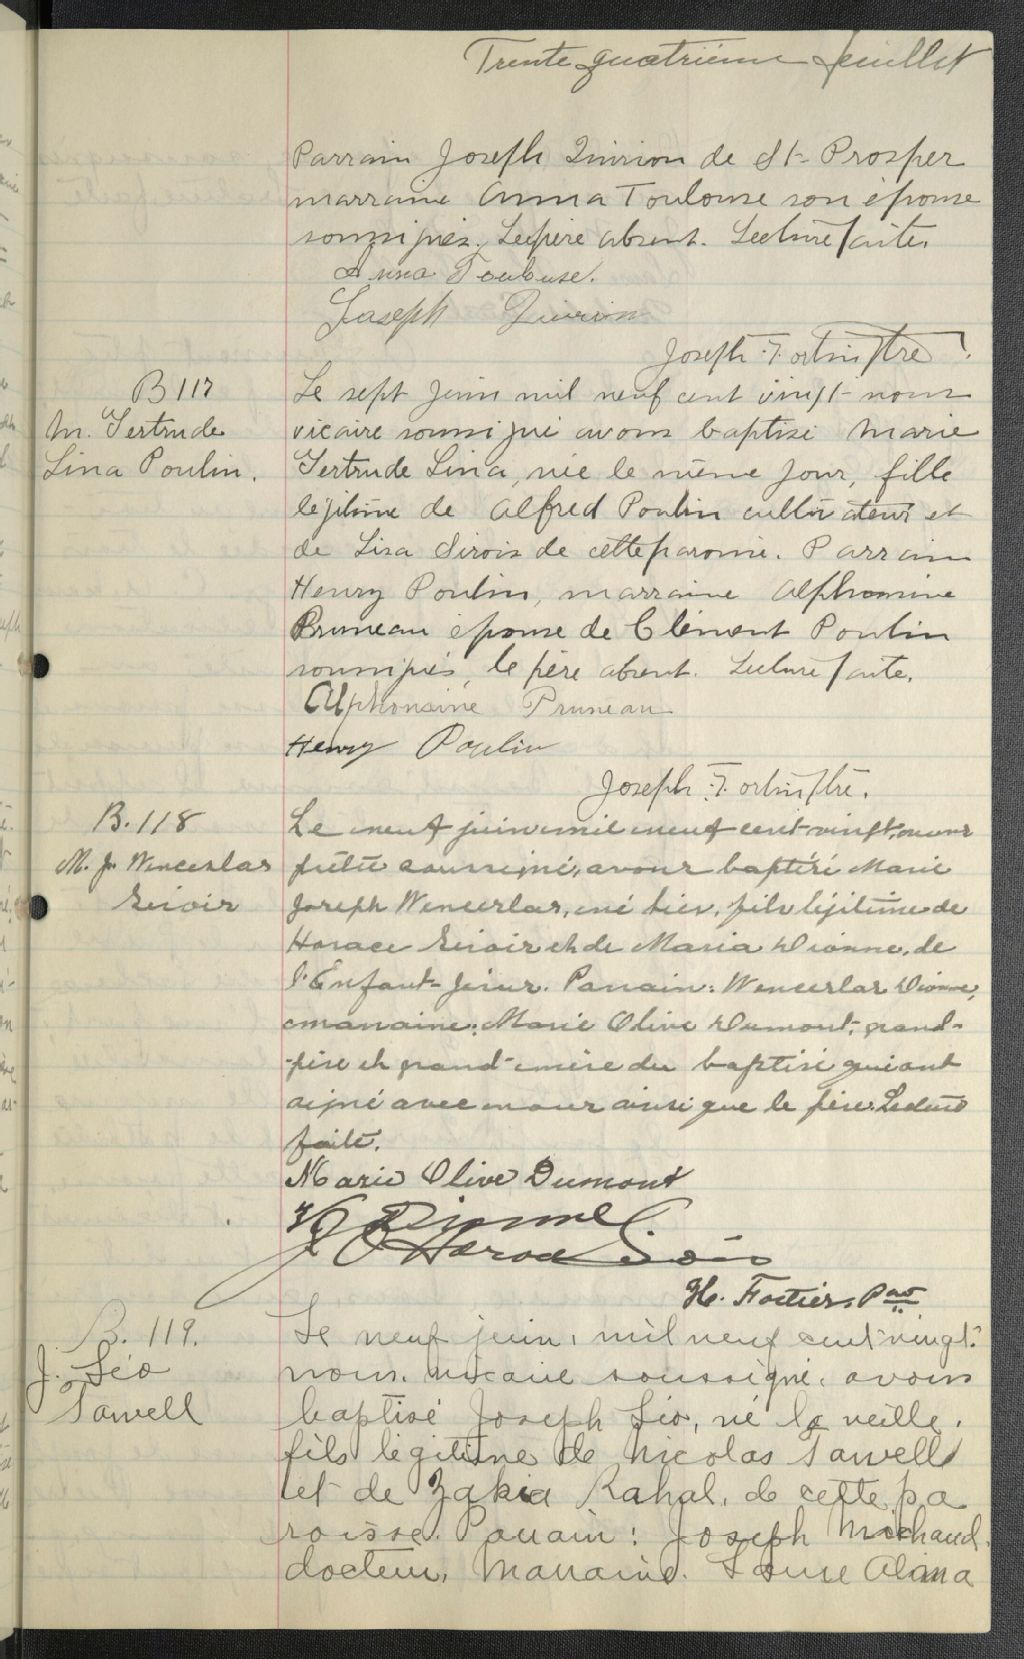 Trente quatrième feuillet
Parrain Joseph Quirion de St-Prosper
marraine Anna Toulouse son épouse
soussignés. Le père absent. Lecture faite.
Anna Toulouse.
Joseph Quirion
Joseph. F. ortin ptre
B 117
M. Gertrude
Lina Poulin.
Le sept juin mil neuf cent vingt nous
vicaire soussigné avons baptisé Marie
Gertrude Lina, née le même jour, fille
légitime de Alfred Poulin cultivateur et
de Lisa Sirois de cette paroisse. Parrain
Henry Poulin, marraine Alphonsine
Pruneau épouse de Clément Poulin
soussignés, le père absent. Lecture faite.
Alphonsine Pruneau
Henry Poulin
Joseph. F. ortin ptre.
B. 118
M. J. Wenceslas
Sirois
Le neuf juin mil neuf cent-vingt, nous
prêtre soussigné, avons baptisé Marie
Joseph Wenceslas, né hier, fils légitime de
Horace Sirois et de Maria Dionne, de
l'Enfant-Jésus. Parrain: Wenceslas Dionne,
marraine: Marie Olive Dumont, grand-
-père et grand-mère du baptisé qui ont
signé avec nous ainsi que le père. Lecture
faite.
Marie Olive Dumont
Dionne
Horace Sirois
H. Fortier, Ptre
B. 119.
J. Léo
Tawell
Le neuf juin, mil neuf cent-vingt.
nous. vicaire soussigné. avons
baptisé Joseph Léo, né la veille.
fils légitime de Nicolas Tawell
et de Zakia Rahal. de cette pa
roisse. Parrain: Joseph Michaud.
docteur, Marraine. Alma